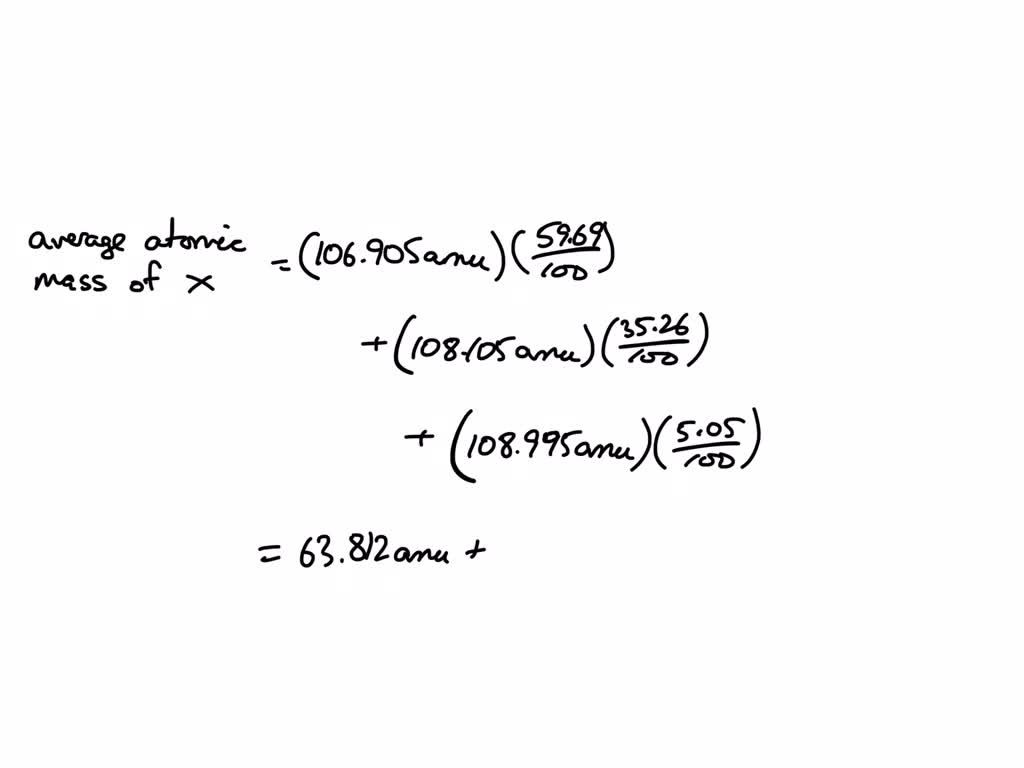 average atomic = (106.905 amu) (59.69/100)
mass of x
+ (108.105 amu) (35.26/100)
+ (108.995 amu) (5.05/100)
= 63.812 amu +